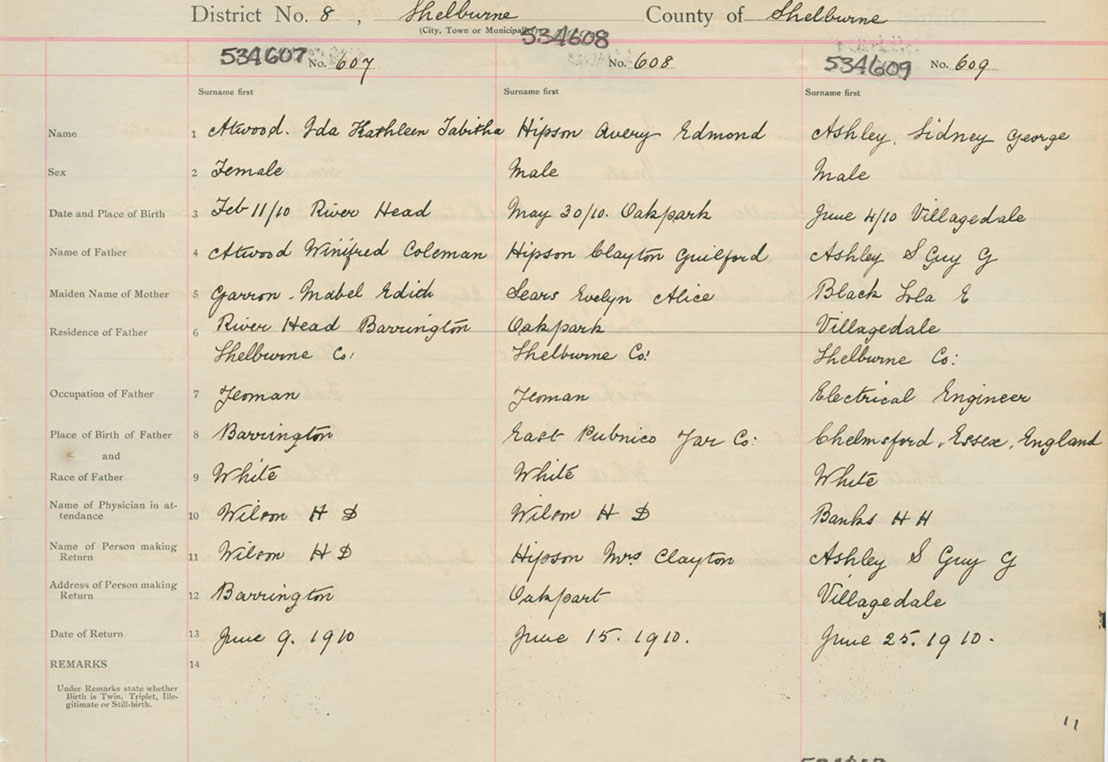 District No. 8 , Shelburne County of Shelburne
(City, Town or Municipality)
534607 No. 607 534608 No. 608 534609 No. 609
Surname first Surname first Surname first
Name 1 Atwood. Ida Kathleen Tabitha Hipson Avery Edmond Ashley, Sidney George
Sex 2 Female Male Male
Date and Place of Birth 3 Feb 11/10 River Head May 30/10. Oakpark June 4/10 Villagedale
Name of Father 4 Atwood Winifred Coleman Hipson Clayton Guilford Ashley S Guy G
Maiden Name of Mother 5 Garron - Mabel Edith Sears Evelyn Alice Black Lola E
Residence of Father 6 River Head Barrington Oakpark Villagedale
Shelburne Co: Shelburne Co: Shelburne Co:
Occupation of Father 7 Yeoman Yeoman Electrical Engineer
Place of Birth of Father 8 Barrington East Pubnico Yar Co: Chelmsford, Essex, England
and
Race of Father 9 White White White
Name of Physician in at-
tendance 10 Wilson H D Wilson H D Banks H H
Name of Person making
Return 11 Wilson H D Hipson Mrs Clayton Ashley S Guy G
Address of Person making
Return 12 Barrington Oakpart Villagedale
Date of Return 13 June 9. 1910 June 15. 1910. June 25. 1910.
REMARKS 14
Under Remarks state whether
Birth is Twin, Triplet, Ille-
gitimate or Still-birth.
11